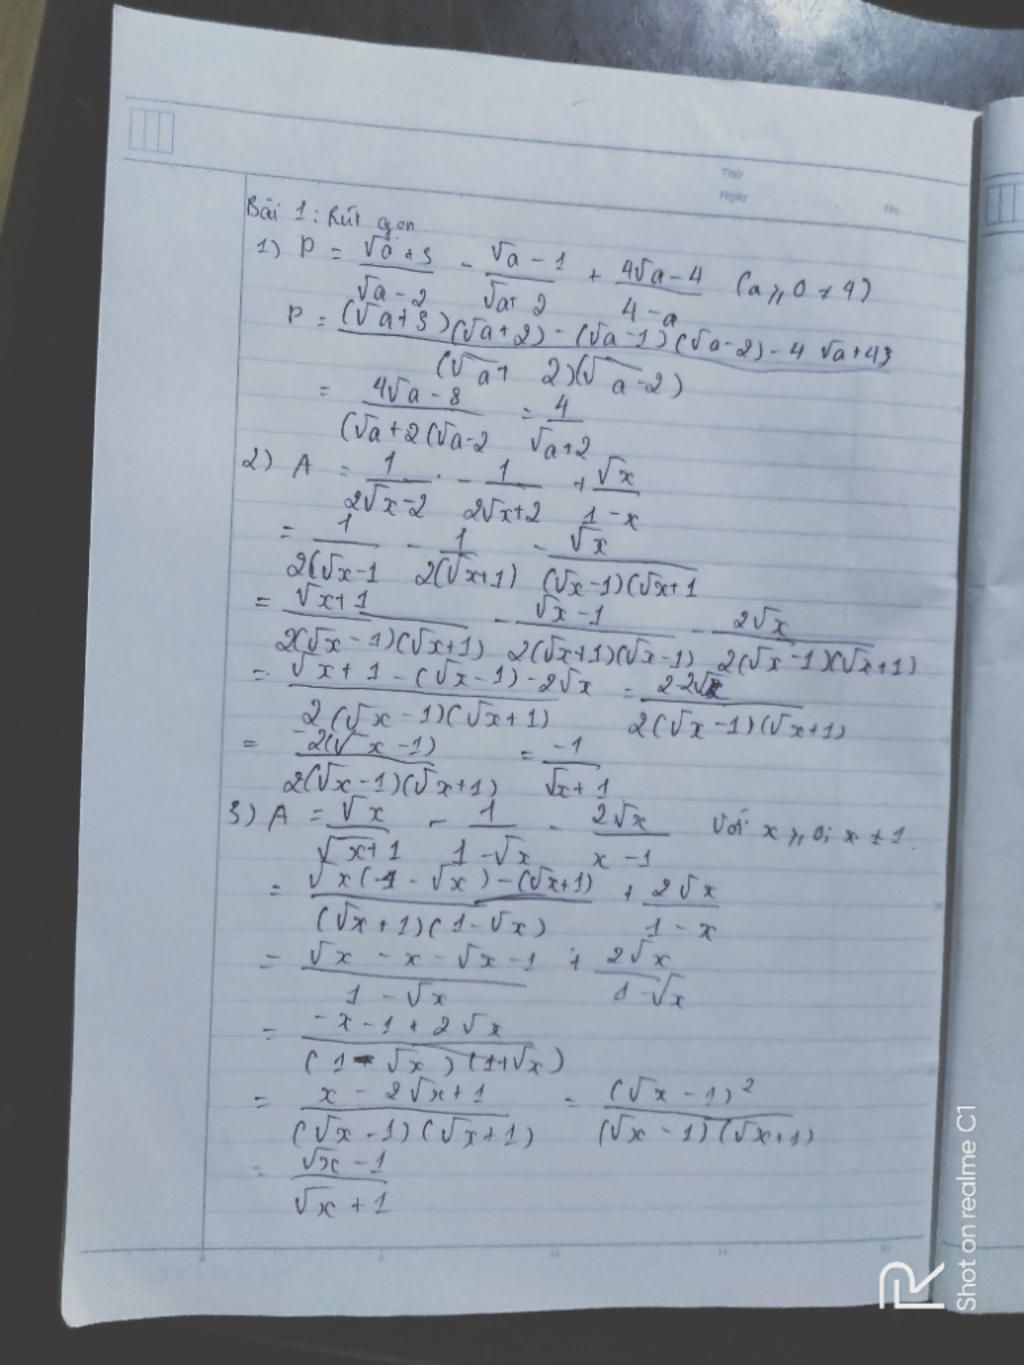 Thứ
Ngày
No
Bài 1: Rút gọn
1) P = (√a + 3)/(√a - 2) - (√a - 1)/(√a + 2) + (4√a - 4)/(4 - a) (a ⩾ 0 ≠ 4)
P = ((√a + 3)(√a + 2) - (√a - 1)(√a - 2) - 4√a + 4)/((√a + 2)(√a - 2))
= (4√a - 8)/((√a + 2(√a - 2) = 4/(√a + 2)
2) A = 1/(2√x - 2) - 1/(2√x + 2) + √x/(1 - x)
= 1/(2(√x - 1) - 1/(2(√x + 1)) - √x/((√x - 1)(√x + 1)
= (√x + 1)/(2(√x - 1)(√x + 1)) - (√x - 1)/(2(√x + 1)(√x - 1)) - 2√x/(2(√x - 1)(√x + 1))
= (√x + 1 - (√x - 1) - 2√x)/(2(√x - 1)(√x + 1)) = (2 - 2√x)/(2(√x - 1)(√x + 1))
= (-2(√x - 1))/(2(√x - 1)(√x + 1)) = -1/(√x + 1)
3) A = √x/(√x + 1) - 1/(1 - √x) - 2√x/(x - 1) Với x ⩾ 0; x ≠ 1.
= (√x(1 - √x) - (√x + 1))/((√x + 1)(1 - √x)) + 2√x/(1 - x)
= (√x - x - √x - 1)/(1 - √x) + 2√x/(1 - √x)
= (-x - 1 + 2√x)/((1 - √x)(1 + √x))
= (x - 2√x + 1)/((√x - 1)(√x + 1)) = (√x - 1)²/((√x - 1)(√x + 1))
= (√x - 1)/(√x + 1)
Shot on realme C1